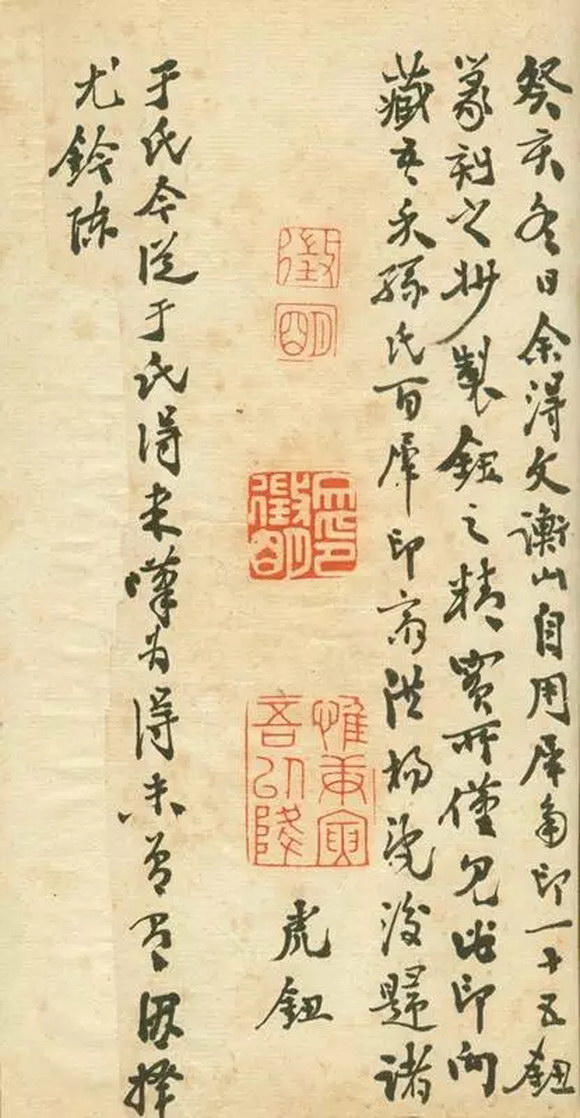 癸亥冬日余得文衡山自用犀角印一十五鈕
篆刻之妙製鈕之精實所僅見此印向
藏吾禾孫氏百犀印齋洪楊亂後歸諸
徵明
徵明印
惟庚寅吾以降
虎鈕
于氏今從于氏得來嘆為得未曾有因擇
尤鈐陳